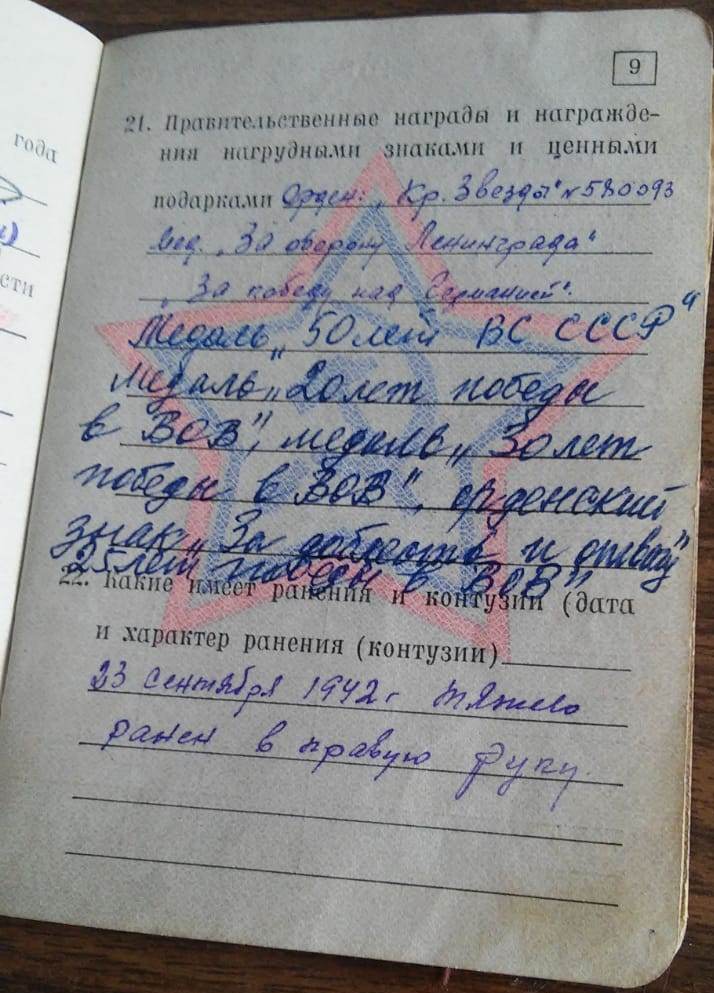 9
21. Правительственные награды и награжде-
ния нагрудными знаками и ценными
подарками Орден: „Кр. Звезды" № 580093
мед. „За оборону Ленинграда"
„За победу над Германией".
Медаль „50 лет ВС СССР"
Медаль „20 лет победы
в ВОВ", медаль „30 лет
победы в ВОВ", орденский
знак „За доблесть и отвагу"
25 лет победы в ВОВ"
22. Какие имеет ранения и контузии (дата
и характер ранения (контузии)
23 сентября 1942 г тяжело
ранен в правую руку.
года
сти